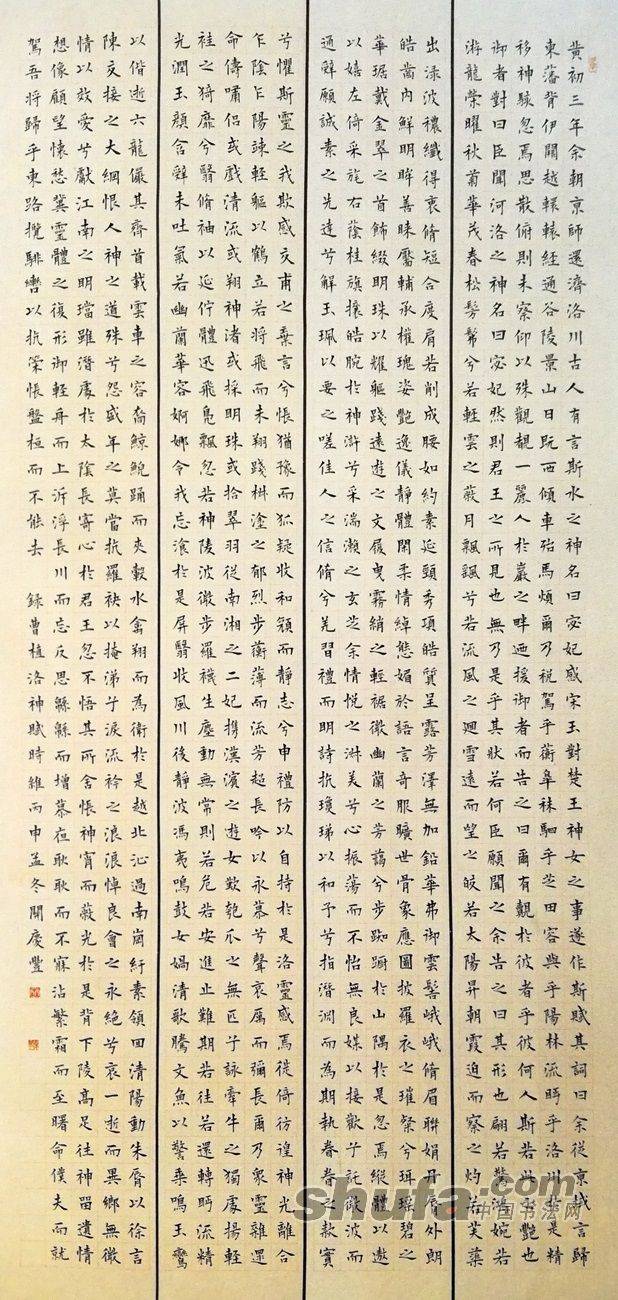 黃初三年余朝京師還濟洛川古人有言斯水之神名曰宓妃感宋玉對楚王神女之事遂作斯賦其詞曰余從京域言歸
東藩背伊闕越轘轅經通谷陵景山日既西傾車殆馬煩爾乃稅駕乎蘅皋秣駟乎芝田容與乎陽林流眄乎洛川於是精
移神駭忽焉思散俯則未察仰以殊觀覩一麗人於巖之畔迺援御者而告之曰爾有覿於彼者乎彼何人斯若此之艷也
御者對曰臣聞河洛之神名曰宓妃然則君王之所見也無乃是乎其狀若何臣願聞之余告之曰其形也翩若驚鴻婉若
游龍榮曜秋菊華茂春松髣髴兮若輕雲之蔽月飄颻兮若流風之廻雪遠而望之皎若太陽昇朝霞迫而察之灼若芙蕖
出淥波穠纖得衷脩短合度肩若削成腰如約素延頸秀項皓質呈露芳澤無加鉛華弗御雲髻峨峨脩眉聯娟丹脣外朗
皓齒內鮮明眸善睞靨輔承權瓌姿艷逸儀靜體閑柔情綽態媚於語言奇服曠世骨象應圖披羅衣之璀粲兮珥瑤碧之
華琚戴金翠之首飾綴明珠以耀軀踐遠遊之文履曳霧綃之輕裾微幽蘭之芳藹兮步踟躕於山隅於是忽焉縱體以遨
以嬉左倚采旄右蔭桂旗攘皓腕於神滸兮采湍瀨之玄芝余情悅之淑美兮心振蕩而不怡無良媒以接歡兮託微波而
通辭願誠素之先達兮解玉珮以要之嗟佳人之信脩兮羌習禮而明詩抗瓊珶以和予兮指潛淵而為期執眷眷之款實
兮懼斯靈之我欺感交甫之棄言兮悵猶豫而狐疑收和顏而靜志兮申禮防以自持於是洛靈感焉徙倚彷徨神光離合
乍陰乍陽竦輕軀以鶴立若將飛而未翔踐椒塗之郁烈步蘅薄而流芳超長吟以永慕兮聲哀厲而彌長爾乃眾靈雜遝
命儔嘯侶或戲清流或翔神渚或採明珠或拾翠羽從南湘之二妃攜漢濱之遊女歎匏瓜之無匹兮詠牽牛之獨處揚輕
袿之猗靡兮翳脩袖以延佇體迅飛鳧飄忽若神陵波微步羅襪生塵動無常則若危若安進止難期若往若還轉眄流精
光潤玉顏含辭未吐氣若幽蘭華容婀娜令我忘湌於是屏翳收風川後靜波馮夷鳴鼓女媧清歌騰文魚以警乘鳴玉鸞
以偕逝六龍儼其齊首載雲車之容裔鯨鯢踊而夾轂水禽翔而為衛於是越北沚過南崗紆素領回清陽動朱脣以徐言
陳交接之大綱恨人神之道殊兮怨盛年之莫當抗羅袂以掩涕兮淚流衿之浪浪悼良會之永絕兮哀一逝而異鄉無微
情以效愛兮獻江南之明璫雖潛處於太陰長寄心於君王忽不悟其所舍悵神宵而蔽光於是背下陵高足往神留遺情
想像顧望懷愁冀靈體之復形御輕舟而上泝浮長川而忘反思緜緜而增慕夜耿耿而不寐沾繁霜而至曙命僕夫而就
駕吾將歸乎東路攬騑轡以抗策悵盤桓而不能去 錄曹植洛神賦時維丙申孟冬開慶豐
shufa.com
中国书法网